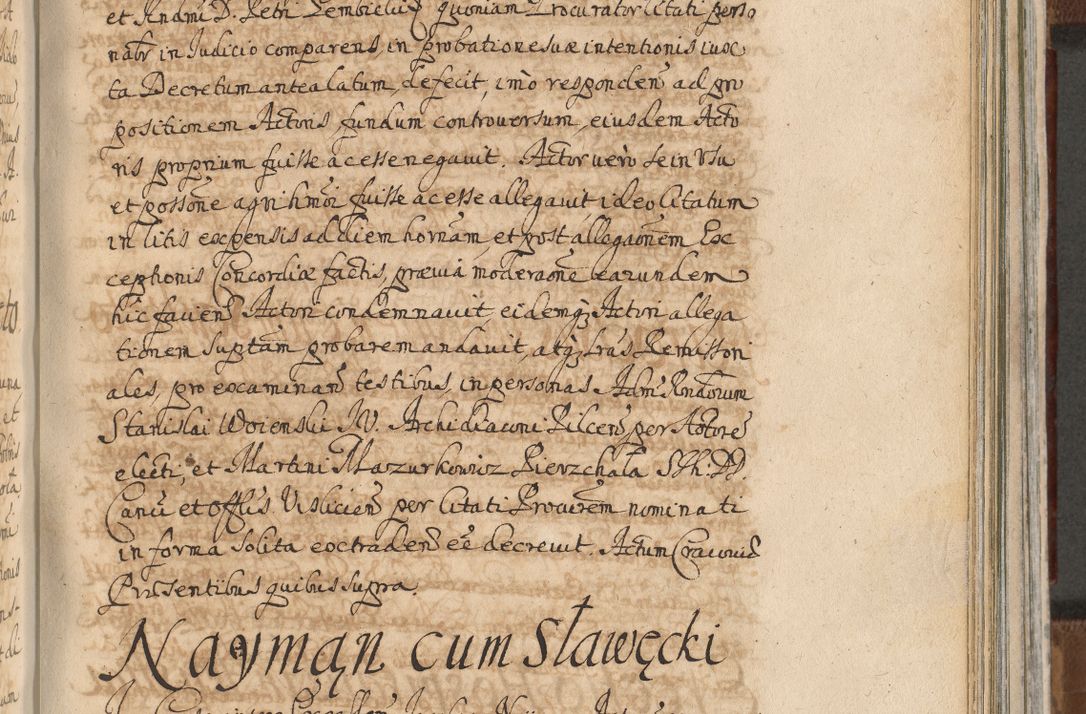 et Andmi D. Petri Pembieliu quoniam Procurator Citati perso
nalr in Iudicio comparens, in probatione suæ intentionis iuxc
ta Decretum antealatum, defecit, imò responden ad pro
positionem Actoris, fundum controuersum, eiusdem Acto
ris proprium fuisse ac esse negauit. Actor uerò se in Vsu
et possone agri hmoi fuisse ac esse allegauit ideo Citatum
in litis expensis ad diem hornam, et post allegaonem Ex
ceptionis Concordiæ factis, præuia moderaone earundem
hic faciend Actori condemnauit eidemq, Actori allega
tionem suptam probare mandauit, atq, lras Remissori
ales, pro examinand testibus, in personas Adm Rndorum
Stanislai Woienski IV. Archidiaconi Pilcen, per Actore
electi, et Martini Mazurkowicz Pierzchała STh: DD.
Canu et Offlis Visliciens per Citati Procurem nominati
in forma solita extradend eē decreuit. Actum Cracouiæ
Præsentibus quibus supra.
Nayman cum Sławęcki